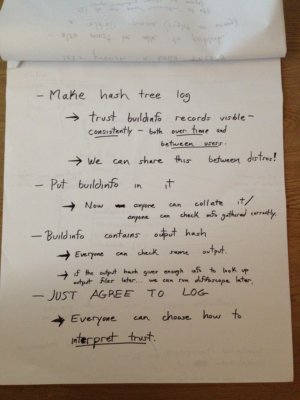 - Make hash tree log
→ trust buildinfo records visible -
consistently - both over time and
between users.
→ We can share this between distros!
- Put buildinfo in it
→ Now anyone can collate it/
anyone can check info gathered correctly.
- Buildinfo contains output hash
→ Everyone can check same output.
→ if the output hash gives enough info to look up
output files later... we can run diffoscope later.
- JUST AGREE TO LOG
→ Everyone can choose how to
interpret trust.